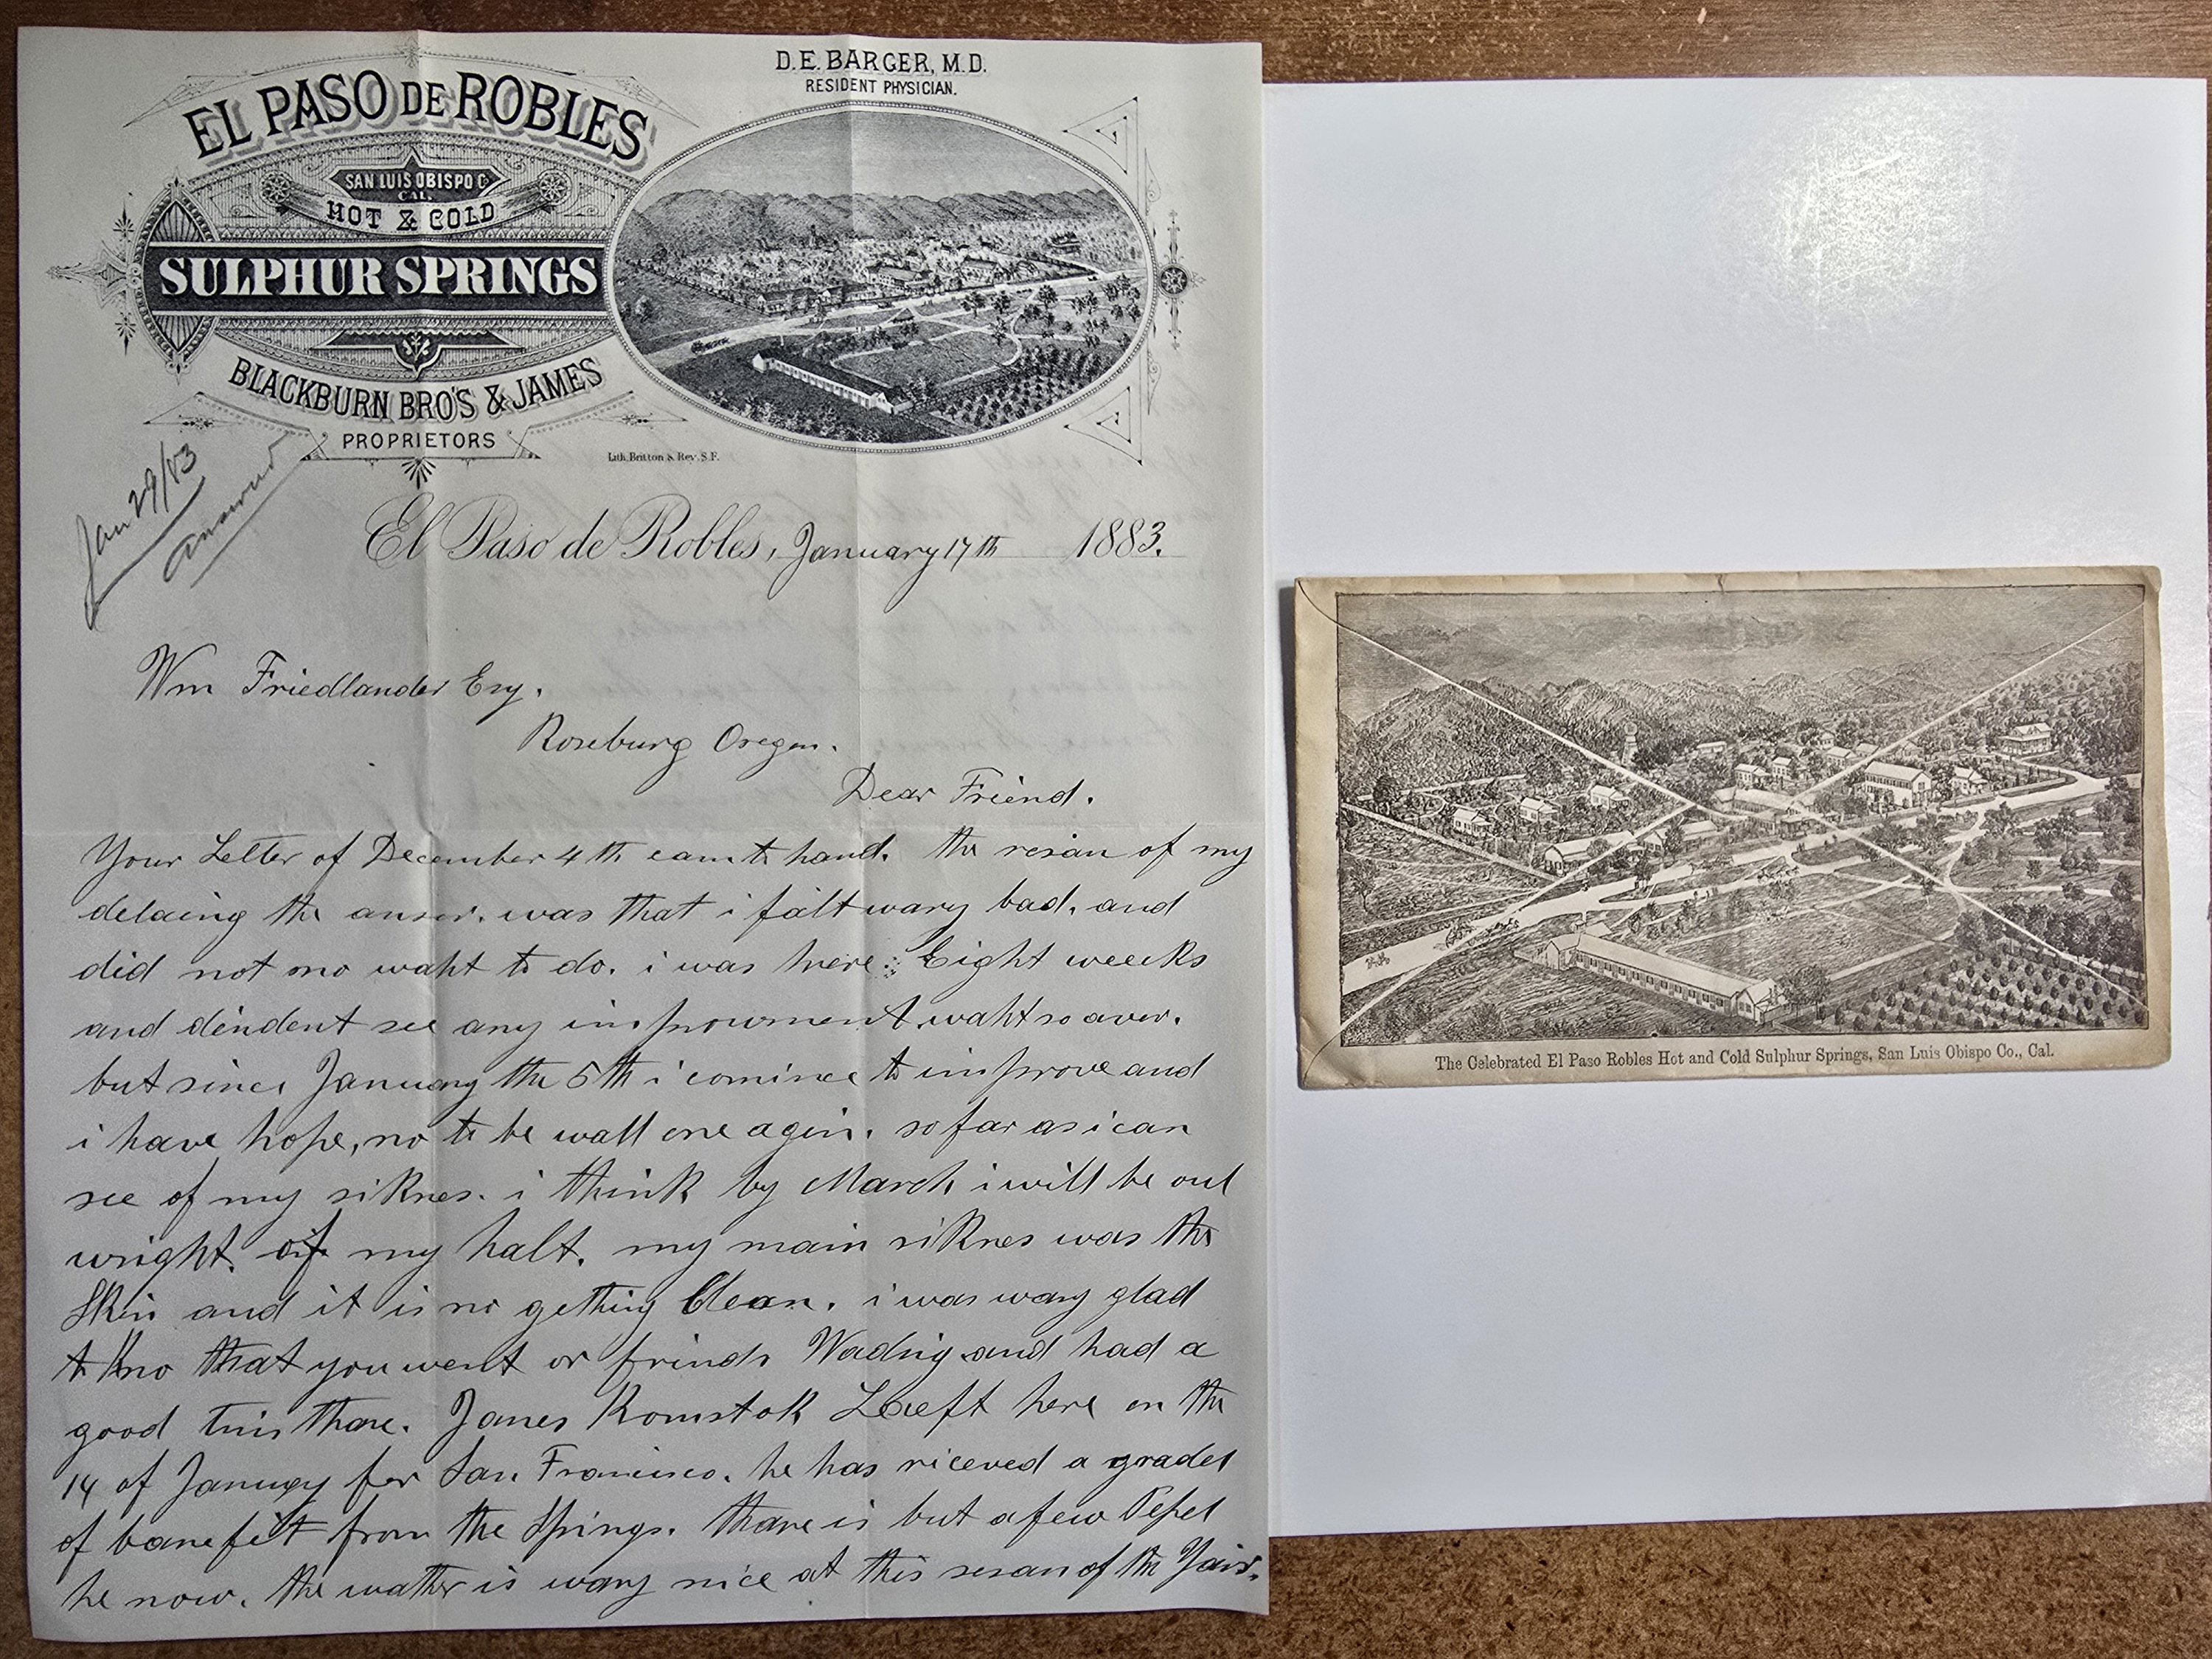 D.E. BARGER, M.D.
RESIDENT PHYSICIAN.
EL PASO DE ROBLES
SAN LUIS OBISPO Co
CAL.
HOT & COLD
SULPHUR SPRINGS
BLACKBURN BRO'S & JAMES
PROPRIETORS
Lith. Britton & Rey. S.F.
Jan 29/83
answerd
El Paso de Robles, January 17th 1883.
Wm Friedlander Esq.
Roseburg Oregon.
Dear Friend.
Your Letter of December 4th cam to hand. the resan of my
delaing the anser. was that i fält wary bad. and
did not no waht to do. i was here Eight weeks
and dindent see any improwment waht so aver.
but since January the 5th i comince to improve and
i have hope, no to be wall one agin. so far as i can
see of my siknes. i think by March i will be oul
wright. of my halt. my main siknes was the
Skin and it is no getting Clean. i was wary glad
to kno that you went or frinds Wading and had a
good thare. James Komstok Leeft here on the
14 of January for San Francisco. he has riceved a gradel
of banefit from the Springs. thare is but a few Pepel
he now. the wather is wary nice at this sesan of the Yair.
The Celebrated El Paso Robles Hot and Cold Sulphur Springs, San Luis Obispo Co., Cal.